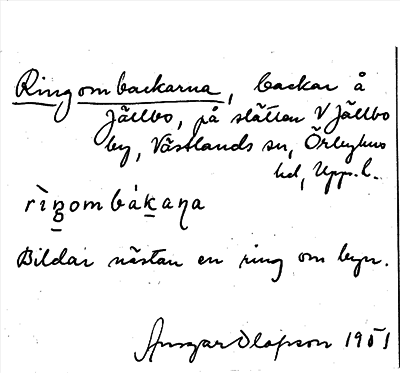 Ringombackarna, backar å
Jällbo, på slätten V Jällbo
by, Västlands sn, Örbyhus
hd, Upp. l.
rìŋombákaṇa
Bildar nästan en ring om byn.
Ansgar Olofsson 1951